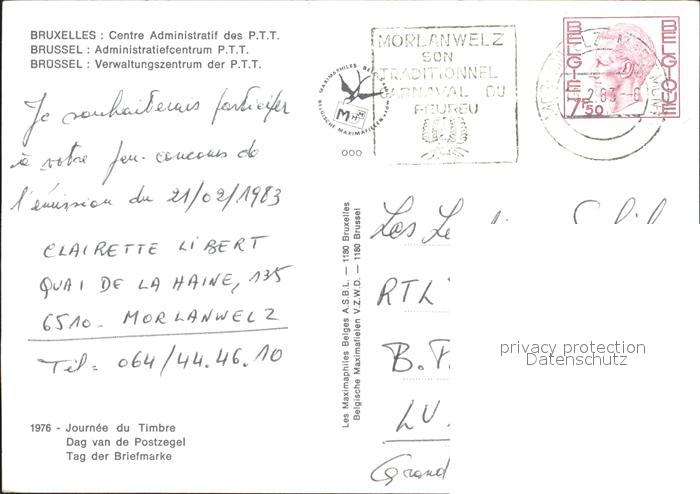 BRUXELLES : Centre Administratif des P.T.T.
BRUSSEL : Administratiefcentrum P.T.T.
BRÜSSEL : Verwaltungszentrum der P.T.T.
Je souhaiterais participer
à votre jeu-concours de
l'émission du 21/02/1983
CLAIRETTE LIBERT
QUAI DE LA HAINE, 135
6510 - MORLANWELZ
Tél = 064/44.46.10
1976 - Journée du Timbre
Dag van de Postzegel
Tag der Briefmarke
MORLANWELZ
SON
TRADITIONNEL
CARNAVAL DU
FEUREU
BELGISCHE MAXIMAFIELEN
000
Les Maximaphiles Belges A.S.B.L. — 1180 Bruxelles
Belgische Maximafielen V.Z.W.D. — 1180 Brussel
BELGIE
BELGIQUE
7F50
Les
RTL
B.P.
LU
Grand
privacy protection
Datenschutz